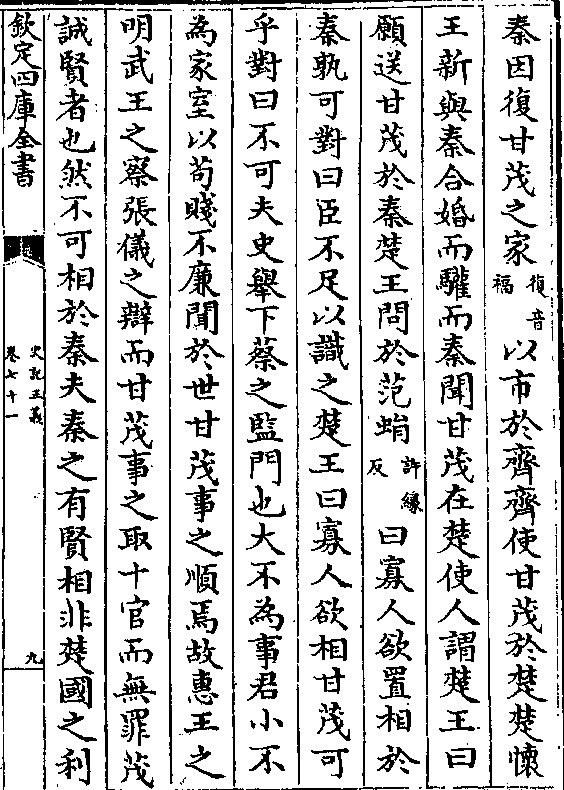 秦因復甘茂之家復音福以市於齊齊使甘茂於楚楚懷
王新與秦合婚而驩而秦聞甘茂在楚使人謂楚王曰
願送甘茂於秦楚王問於范蜎許緣反曰寡人欲置相於
秦孰可對曰臣不足以識之楚王曰寡人欲相甘茂可
乎對曰不可夫史舉下蔡之監門也大不為事君小不
為家室以苟賤不廉聞於世甘茂事之順焉故惠王之
明武王之察張儀之辯而甘茂事之取十官而無罪茂
誠賢者也然不可相於秦夫秦之有賢相非楚國之利
欽定四庫全書
史記正義
卷七十一
九